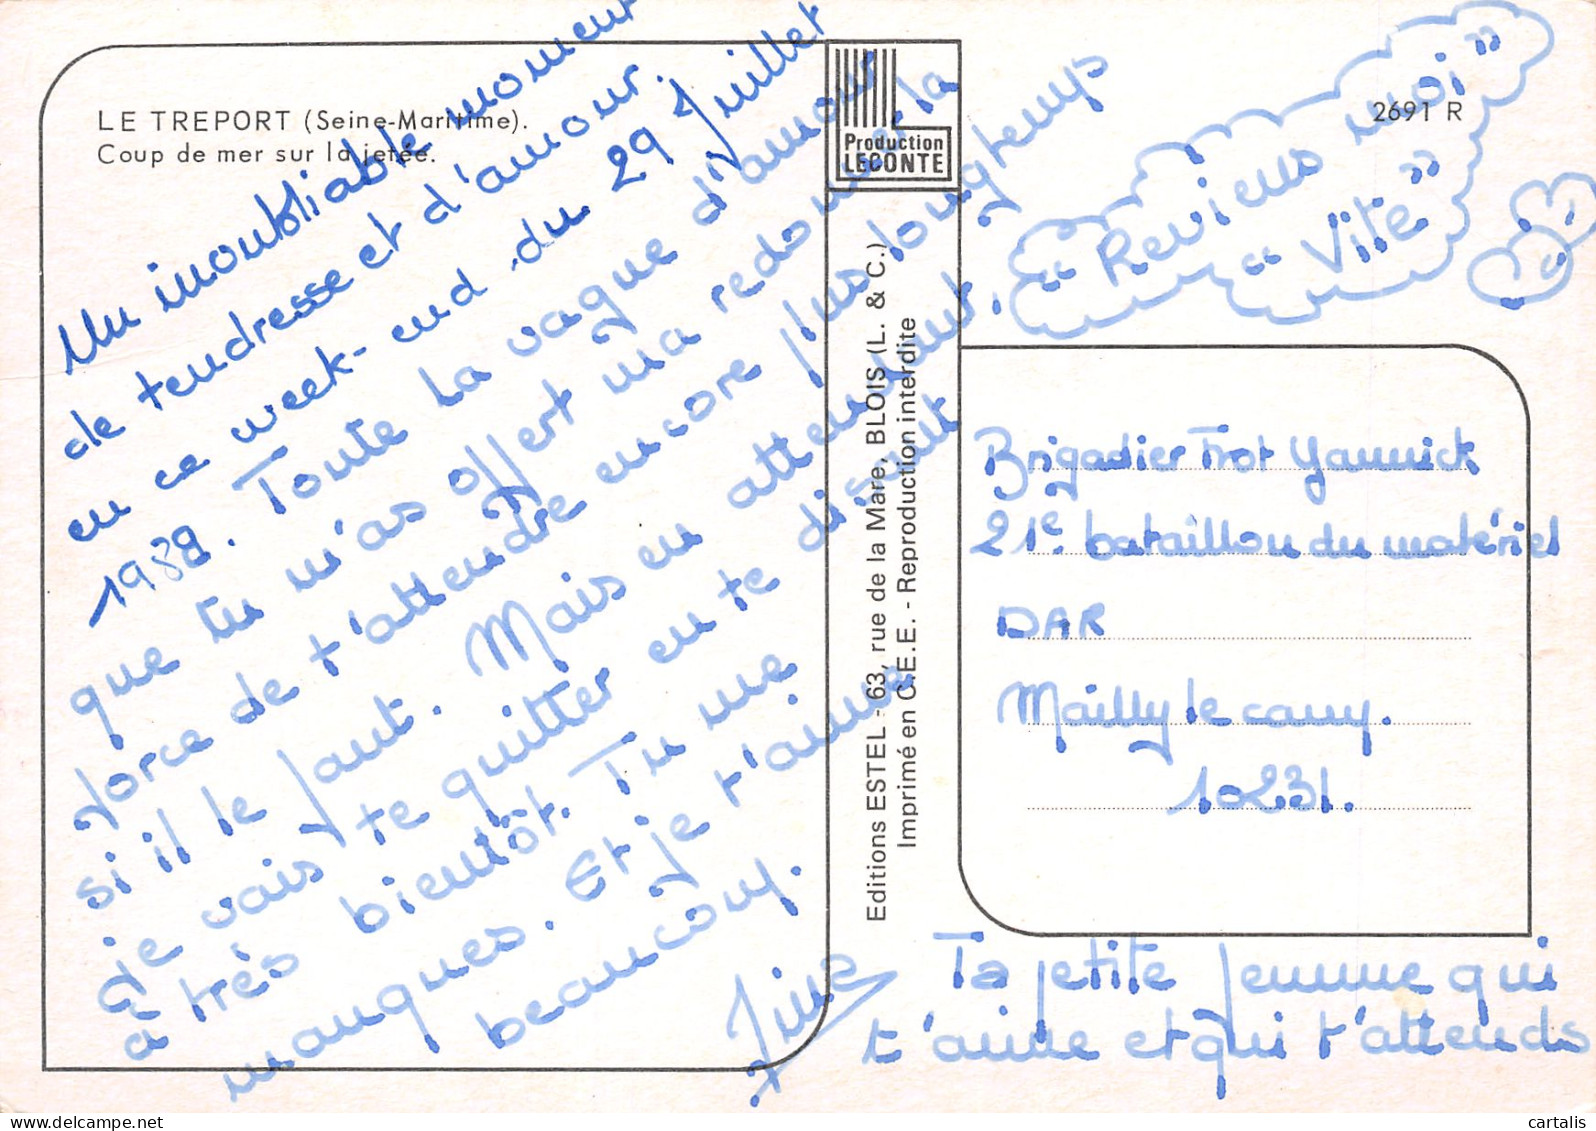 LE TREPORT (Seine-Maritime).
Coup de mer sur la jetée.
Un inoubliable moment
de tendresse et d'amour.
en ce week-end du 29 Juillet
1989. Toute la vague d'amour
que tu m'as offert ma redonner la
force de t'attendre encore plus longtemps
si il le faut. Mais en attendant,
je vais te quitter en te disant
à très bientôt. Tu me
manques. Et je t'aime
beaucoup.
Production
LECONTE
Editions ESTEL - 63, rue de la Mare, BLOIS (L. & C.)
Imprimé en C.E.E. - Reproduction interdite
2691 R
"Reviens moi"
"Vite"
Brigadier Trot Yannick
21e. bataillon du matériel
DAR
Mailly le camp.
10231.
Ta petite femme qui
t'aime et qui t'attends
delcampe.net
cartalis